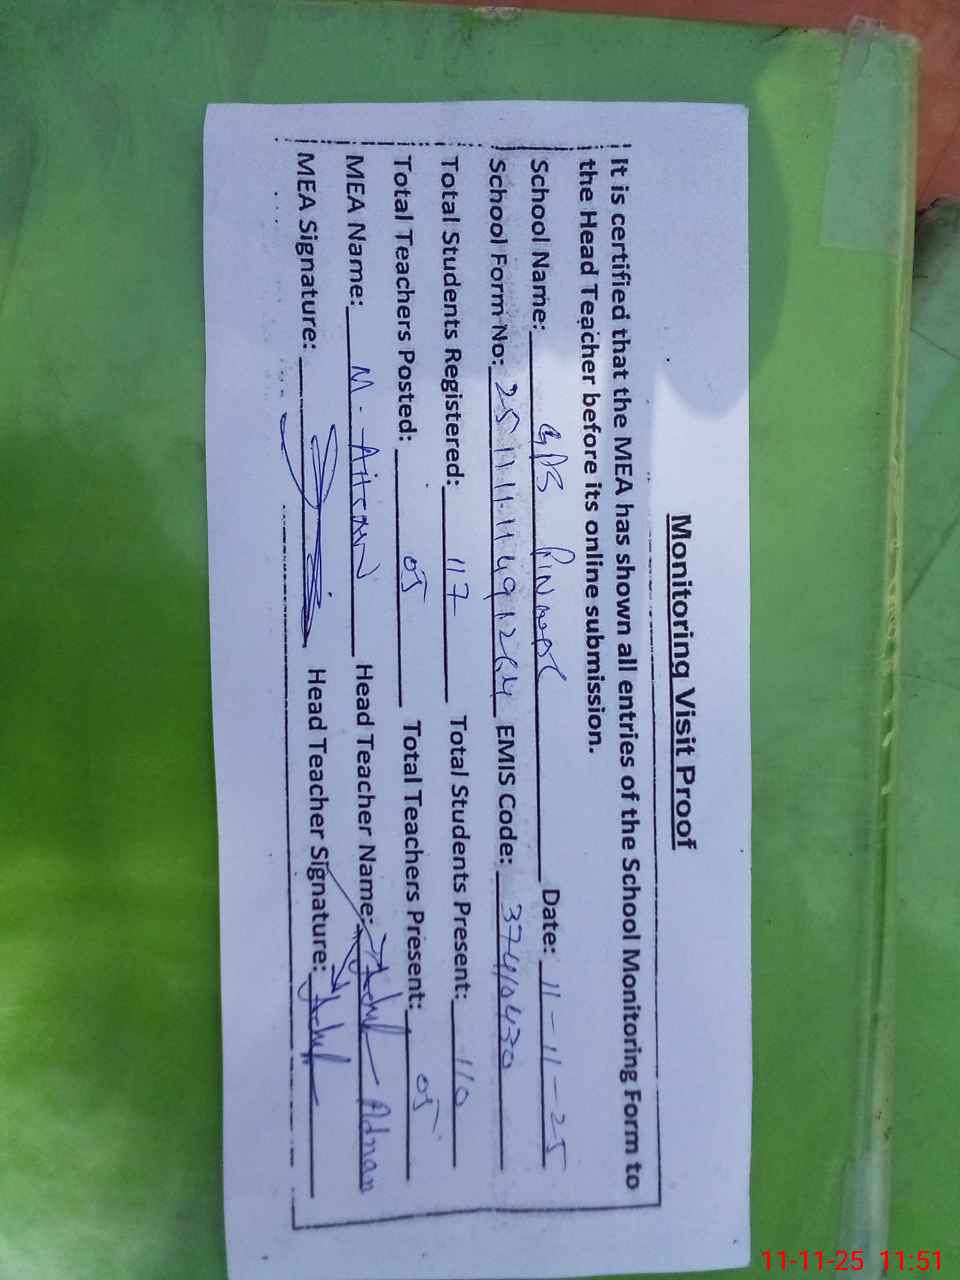 Monitoring Visit Proof
It is certified that the MEA has shown all entries of the School Monitoring Form to
the Head Teacher before its online submission.
School Name: GPS Date: 11-11-25
School Form No: 25111111491264 EMIS Code: 37410430
Total Students Registered: 117 Total Students Present: 110
Total Teachers Posted: 05 Total Teachers Present: 05
MEA Name: M. Head Teacher Name: Adnan
MEA Signature: Head Teacher Signature:
11-11-25 11:51